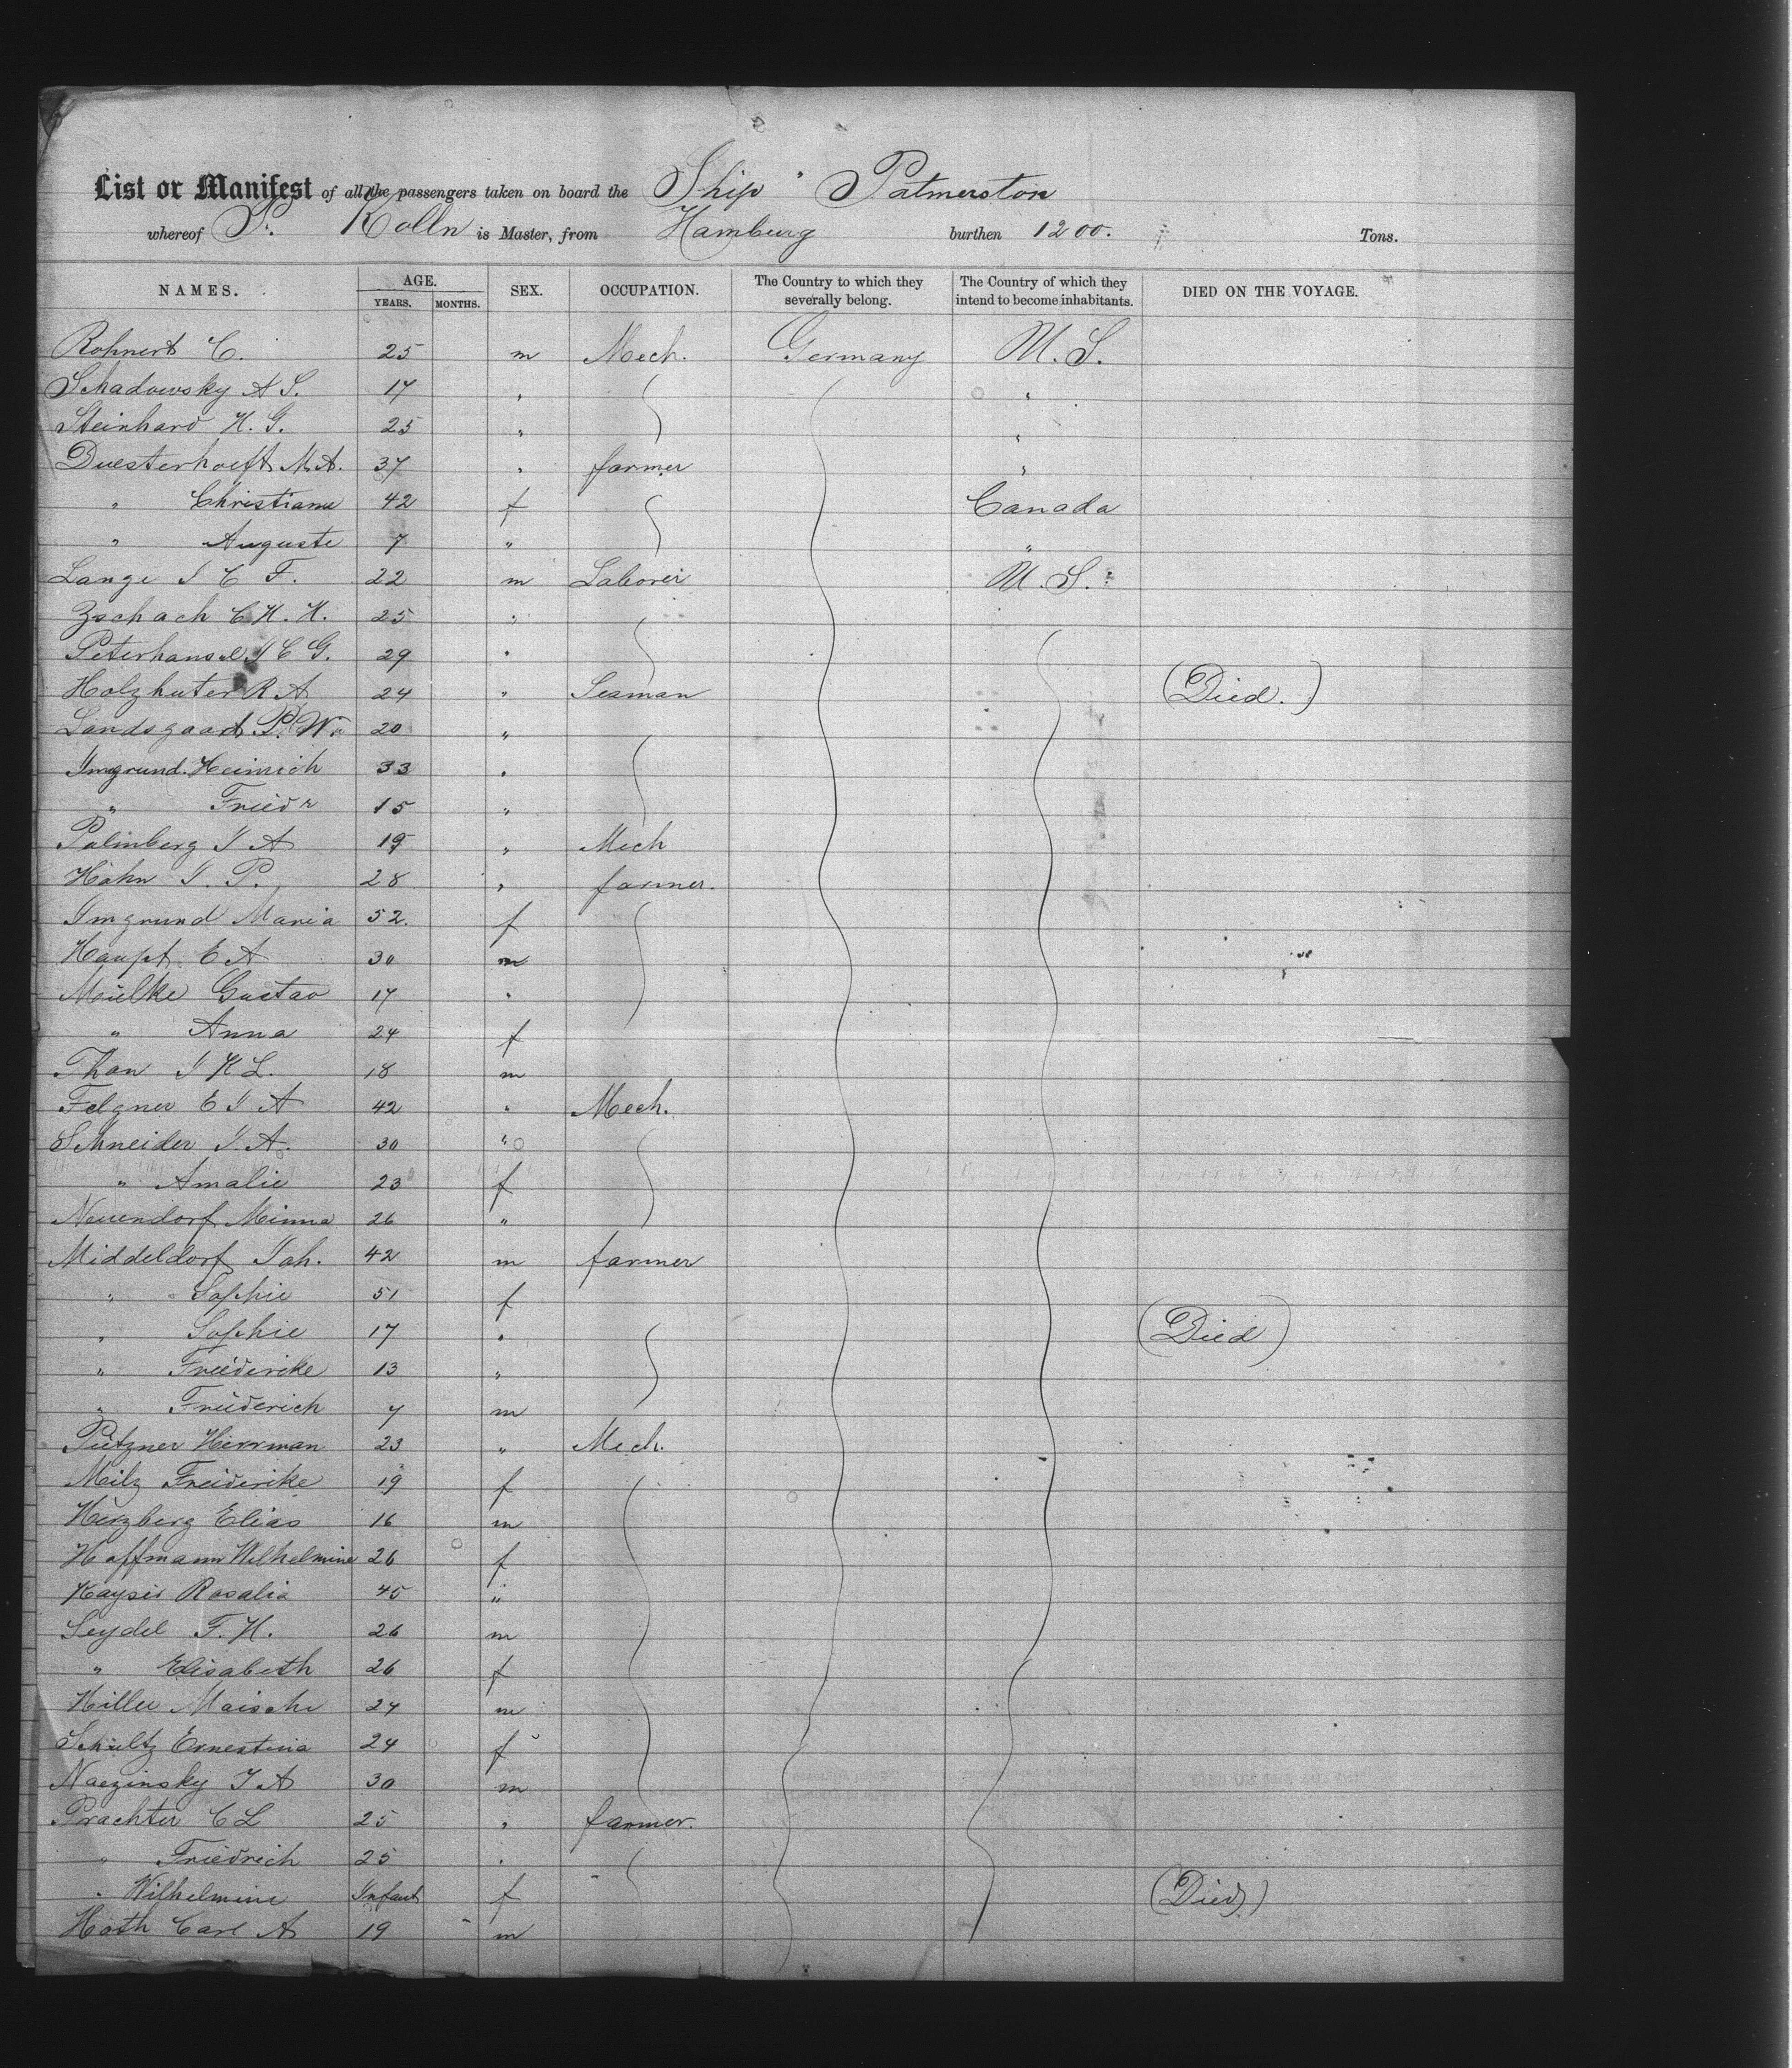 List or Manifest of all the passengers taken on board the Ship " Palmerston
whereof P. Kölln is Master, from Hamburg burthen 1200. Tons.
NAMES. AGE. YEARS. MONTHS. SEX. OCCUPATION. The Country to which they severally belong. The Country of which they intend to become inhabitants. DIED ON THE VOYAGE.
Rohnert C. 25 m Mech. Germany U.S.
Schadowsky A S. 17 " "
Steinhard H. G. 25 " "
Duesterhoeft M.A. 37 " farmer "
" Christiana 42 f Canada
" Auguste 7 " "
Lange J C F. 22 m Laborer U.S.
Zschach C H. H. 25 "
Peterhansel J C G. 29 "
Holzhuter R A 24 " Seaman (Died.)
Landsgaard P. W. 20 "
Imgrund Heinrich 33 "
" Friedr 15 "
Palmberg J A 19 " Mech
Hahn J. P. 28 " farmer.
Imgrund Maria 52. f
Haupt E A 30 m
Muelke Gustav 17 "
" Anna 24 f
Than J K L. 18 m
Felgner E J A 42 " Mech.
Schneider J. A. 30 "
" Amalie 23 f
Neuendorf Minna 26 "
Middeldorf Joh. 42 m farmer
" Sophie 51 f
" Sophie 17 " (Died)
" Friederike 13 "
" Friederich 7 m
Pützner Herrman 23 " Mech.
Milz Freiderike 19 f
Herzberg Elias 16 m
Hoffmann Wilhelmine 26 f
Kayser Rosalia 45 "
Seydel F. H. 26 m
" Elisabeth 26 f
Hiller Maische 24 m
Schultz Ernestina 24 f
Naezinsky J A 30 m
Prachter C L 25 " farmer.
" Friedrich 25 "
" Wilhelmine Infant f (Died)
Hoth Carl A 19 m